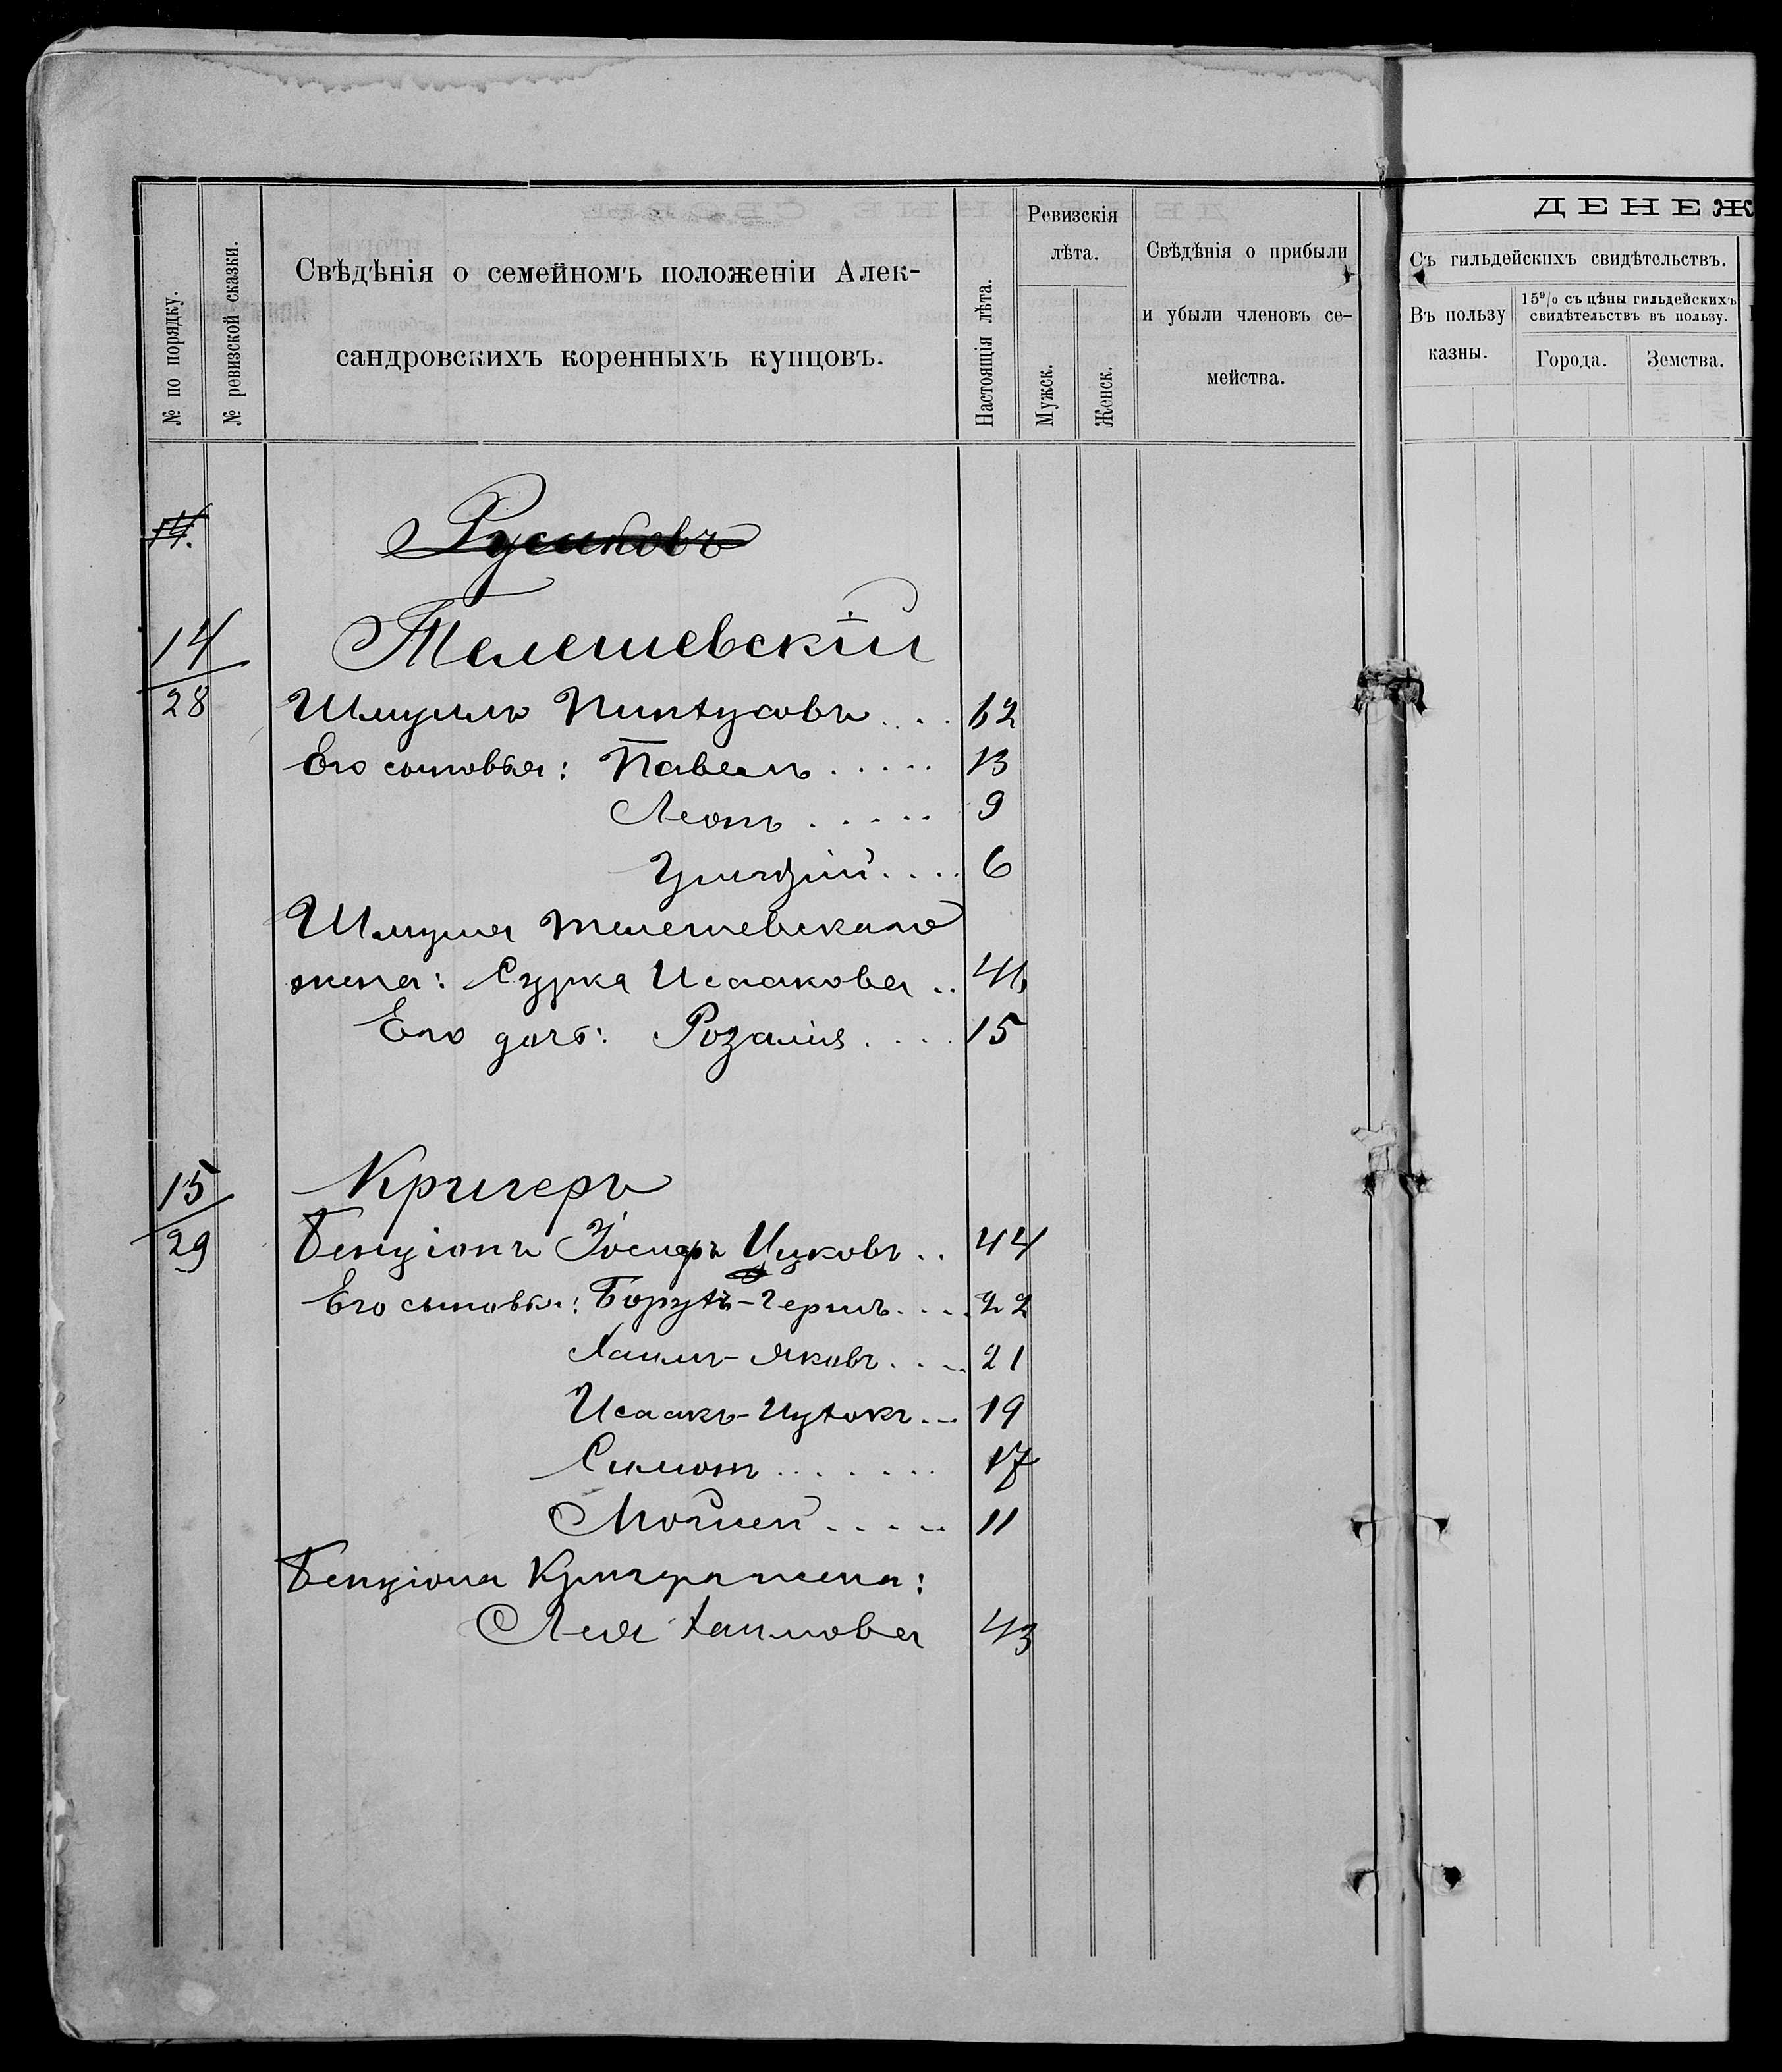 № по порядку.
№ ревизской сказки.
Свѣдѣнія о семейномъ положеніи Алек-
сандровскихъ коренныхъ купцовъ.
Настоящія лѣта.
Ревизскія
лѣта.
Мужск.
Женск.
Свѣдѣнія о прибыли
и убыли членовъ се-
мейства.
ДЕНЕЖ
Съ гильдейскихъ свидѣтельствъ.
Въ пользу
казны.
15% съ цѣны гильдейскихъ
свидѣтельствъ въ пользу.
Города.
Земства.
14.
Русиновъ
14
28
Телешевскій
Шмуиль Пинхусовъ....
Его сыновья: Павелъ..... 13
Леонъ..... 9
6
Шмуля Телешевскаго
жена: Сурка Исаакова.. 41
Его дочь: Розалія.... 15
15
29
Кригеръ
Бенціонъ Іосифъ Ицковъ.. 44
Его сыновья: Борухъ-Гершъ.... 22
Хаимъ-Яковъ.... 21
Исаакъ-Ицхокъ.. 19
Симонъ....... 17
Мойсей..... 11
Бенціона Кригера жена:
Лея Хаимова 43